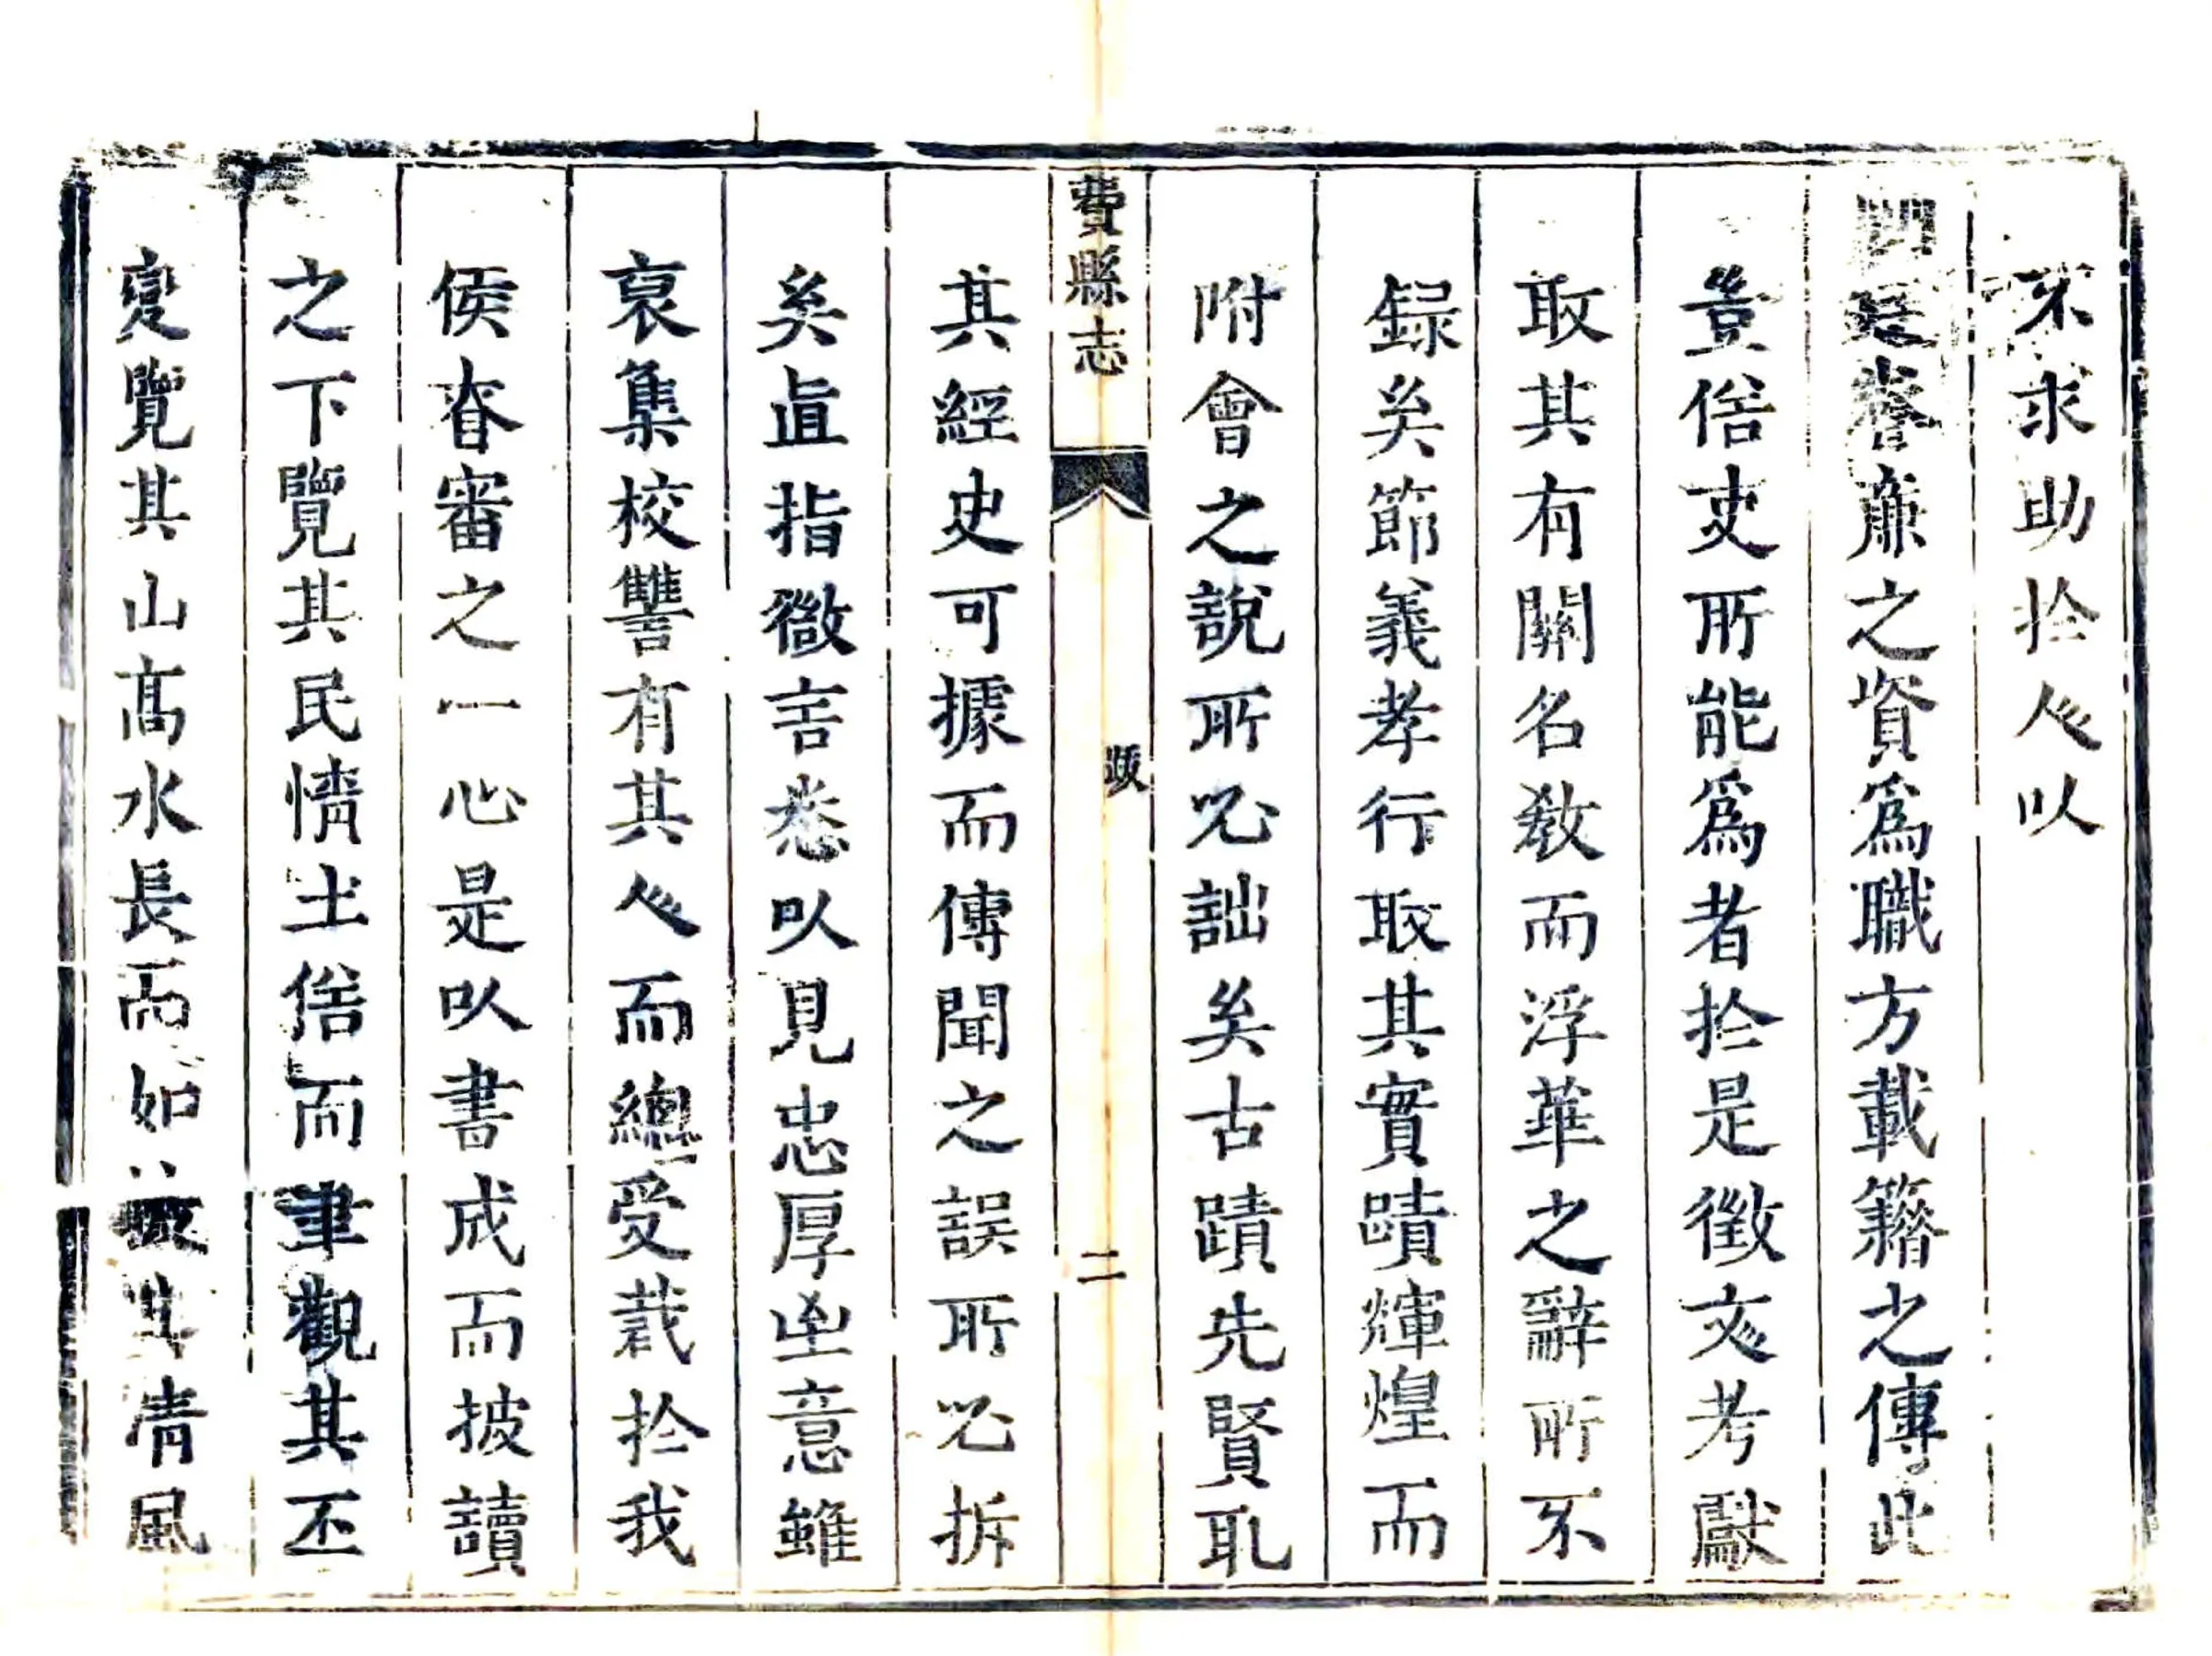 不求助於人以
朝廷養廉之資爲職方載籍之傳此
豈俗吏所能爲者於是徵文考獻
取其有關名教而浮華之辭所不
録矣節義孝行取其實蹟輝煌而
附會之說所必詘矣古蹟先賢取
費縣志 跋 二
其經史可據而傳聞之誤所必拆
矣直指微言悉以見忠厚至意雖
裒集校讐有其人而總受裁於我
侯眘審之一心是以書成而披讀
之下覽其民情土俗而聿觀其丕
變覽其山高水長而如其清風